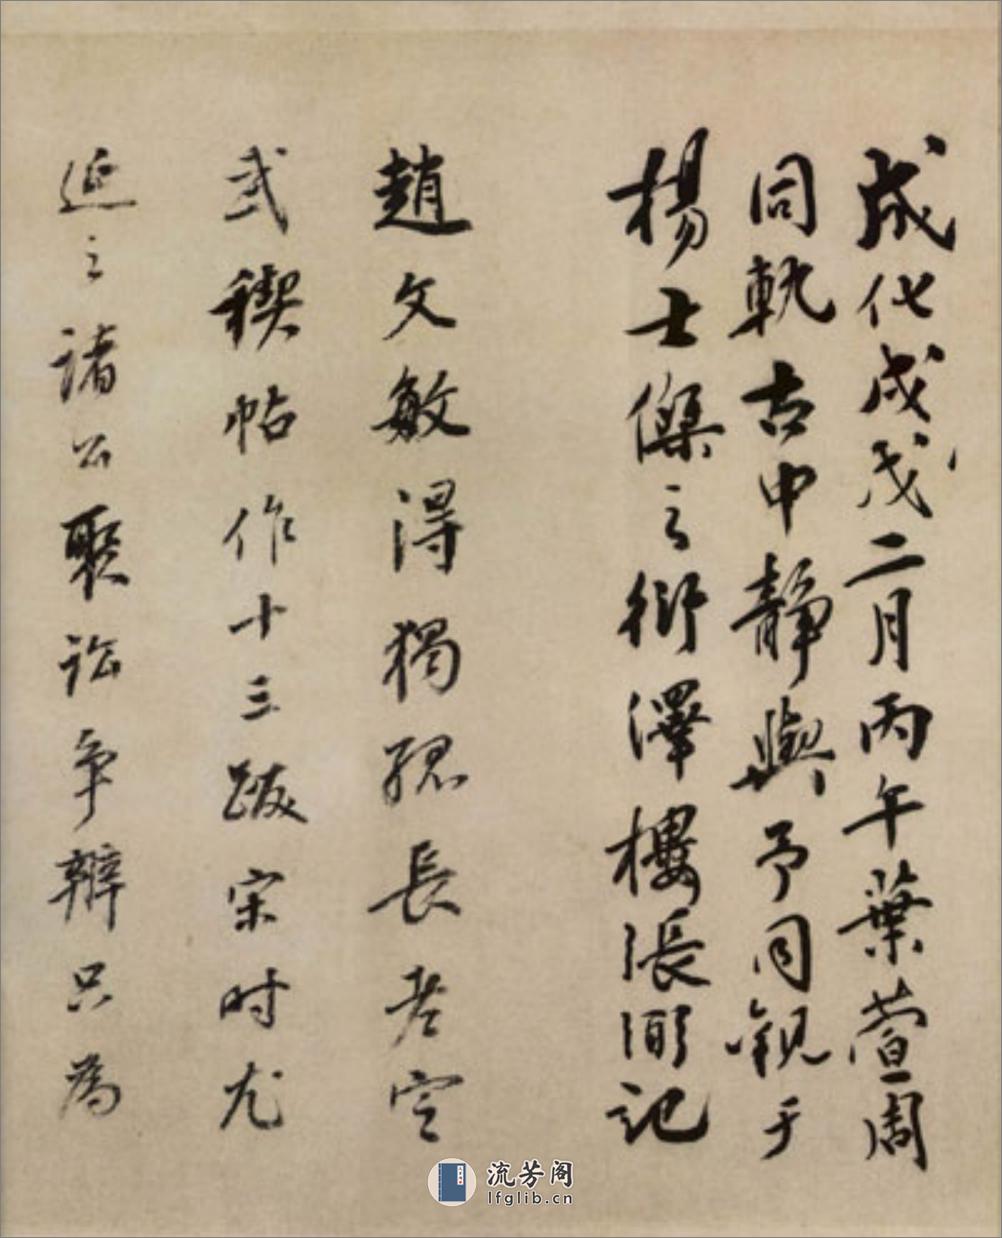 成化戊戌二月丙午葉萱周
同軌古中靜與予同觀于
楊士傑之衍澤樓張弼記
趙文敏得獨孤長老定
武禊帖作十三跋宋时尤
延之諸公聚訟争辨只為
流芳阁
lfglib.cn